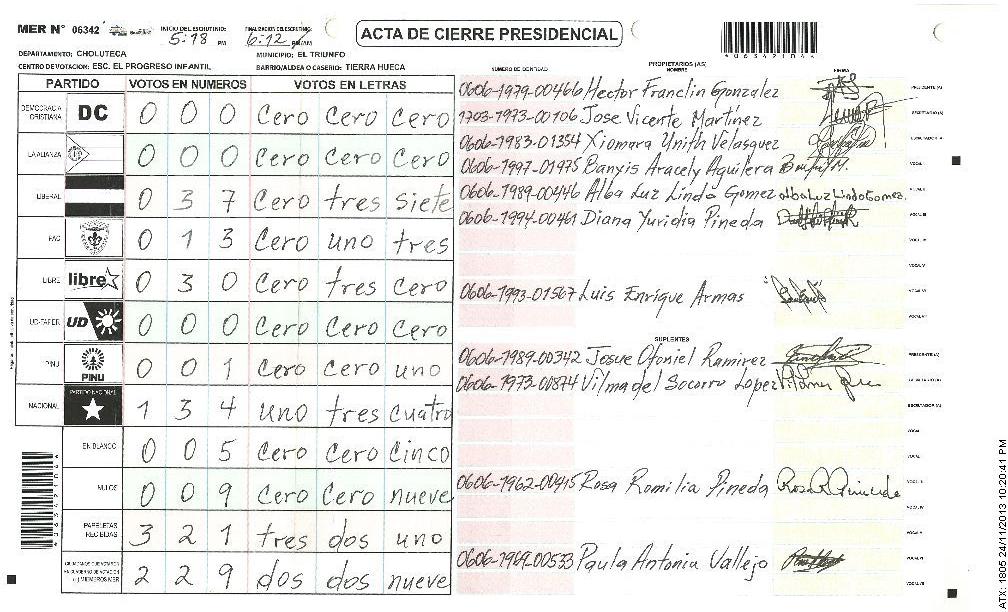 MER N° 06342 INICIO DEL ESCRUTINIO: 5:18 PM FINALIZACION DEL ESCRUTINIO: 6:12 PM/AM ACTA DE CIERRE PRESIDENCIAL
DEPARTAMENTO: CHOLUTECA MUNICIPIO: EL TRIUNFO
CENTRO DE VOTACION: ESC. EL PROGRESO INFANTIL BARRIO/ALDEA O CASERIO: TIERRA HUECA
PARTIDO VOTOS EN NUMEROS VOTOS EN LETRAS
DEMOCRACIA CRISTIANA DC 0 0 0 Cero Cero Cero
LA ALIANZA 0 0 0 Cero Cero Cero
LIBERAL 0 3 7 Cero tres siete
PAC 0 1 3 Cero uno tres
LIBRE libre 0 3 0 Cero tres cero
UD-FAPER UD 0 0 0 Cero Cero Cero
PINU PINU 0 0 1 Cero Cero uno
NACIONAL PARTIDO NACIONAL 1 3 4 uno tres cuatro
EN BLANCO 0 0 5 Cero Cero Cinco
NULOS 0 0 9 Cero Cero nueve
PAPELETAS RECIBIDAS 3 2 1 tres dos uno
CIUDADANOS QUE VOTARON EN CUADERNO DE VOTACION (+) MIEMBROS MER 2 2 9 dos dos nueve
NUMERO DE IDENTIDAD PROPIETARIOS (AS) NOMBRE FIRMA
0606-1979-00466 Hector Franclin Gonzalez PRESIDENTE (A)
1703-1973-00106 Jose Vicente Martínez SECRETARIO (A)
0606-1983-01354 Xiomara Unith Velasquez ESCRUTADOR (A)
0606-1997-01975 Banyis Aracely Aguilera VOCAL I
0606-1989-00446 Alba Luz Lindo Gomez alba Luz Lindo Gomez. VOCAL II
0606-1994-00461 Diana Yuridia Pineda VOCAL III
VOCAL IV
VOCAL V
0606-1993-01567 Luis Enrique Armas VOCAL VI
VOCAL VII
SUPLENTES
0606-1989-00342 Josue Otoniel Ramirez PRESIDENTE (A)
0606-1973-00874 Vilma del Socorro Lopez SECRETARIO (A)
ESCRUTADOR (A)
VOCAL I
VOCAL II
0606-1962-00415 Rosa Romilia Pineda VOCAL III
VOCAL IV
VOCAL V
0606-1969-00533 Paula Antonia Vallejo VOCAL VI
VOCAL VII
ATX: 1805 24/11/2013 10:20:41 PM